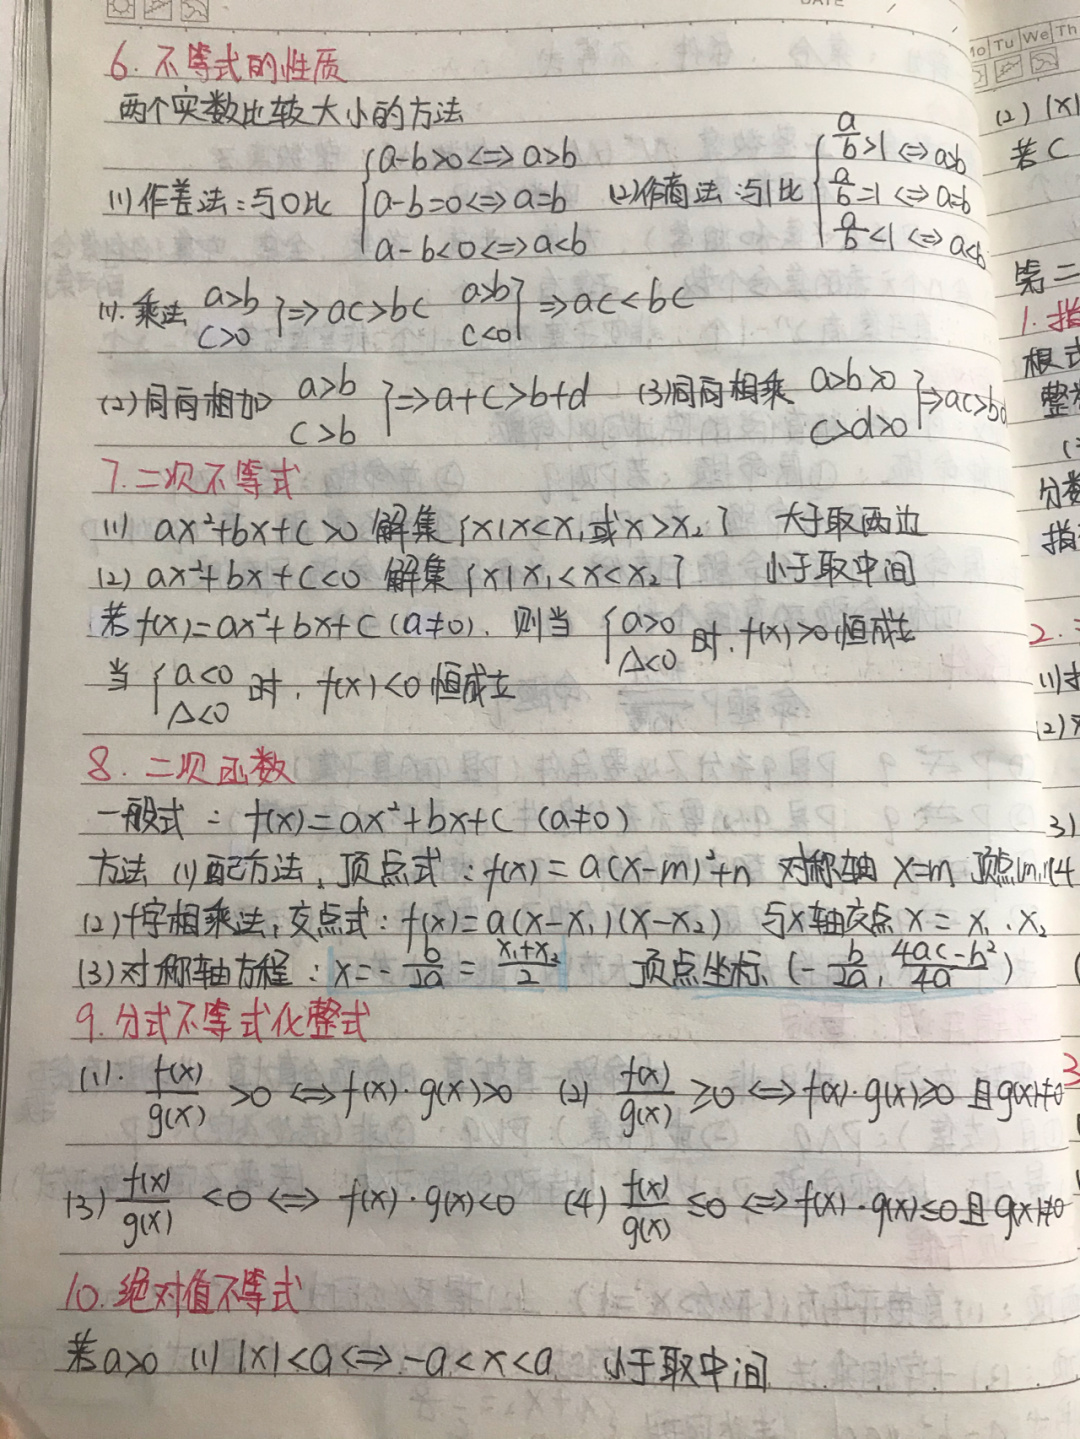 DATE
6. 不等式的性质
两个实数比较大小的方法
(1)作差法:与0比 { a-b>0<=>a>b
a-b=0<=>a=b
a-b<0<=>a<b
(2)作商法:与1比 { a/b>1<=>a>b
a/b=1<=>a=b
a/b<1<=>a<b
(1). 乘法 a>b c>0 }=>ac>bc a>b c<0 }=>ac<bc
(2)同向相加 a>b c>b }=>a+c>b+d (3)同向相乘 a>b>0 c>d>0 }=>ac>bd
7.二次不等式
(1) ax²+bx+c>0 解集{x|x<x₁或x>x₂} 大于取两边
(2) ax²+bx+c<0 解集{x|x₁<x<x₂} 小于取中间
若f(x)=ax²+bx+c(a≠0). 则当 { a>0 Δ<0 时. f(x)>0恒成立
当 { a<0 Δ<0 时. f(x)<0恒成立
8. 二次函数
一般式: f(x)=ax²+bx+c (a≠0)
方法 (1)配方法, 顶点式: f(x)=a(x-m)²+n 对称轴 x=m 顶点(m,n)
(2)十字相乘法, 交点式: f(x)=a(x-x₁)(x-x₂) 与x轴交点 x=x₁.x₂
(3)对称轴方程: x=-b/2a=x₁+x₂/2 顶点坐标(-b/2a, 4ac-b²/4a)
9.分式不等式化整式
(1). f(x)/g(x)>0<=>f(x)·g(x)>0 (2) f(x)/g(x)≥0<=>f(x)·g(x)≥0且g(x)≠0
(3) f(x)/g(x)<0<=>f(x)·g(x)<0 (4) f(x)/g(x)≤0<=>f(x)·g(x)≤0且g(x)≠0
10.绝对值不等式
若a>0 (1)|x|<a<=>-a<x<a 小于取中间
Mo Tu We Th
(2) |x|
若c
第二
1.指
根式
整
分数
指
2.
(1)
(2)
3)
(4
3